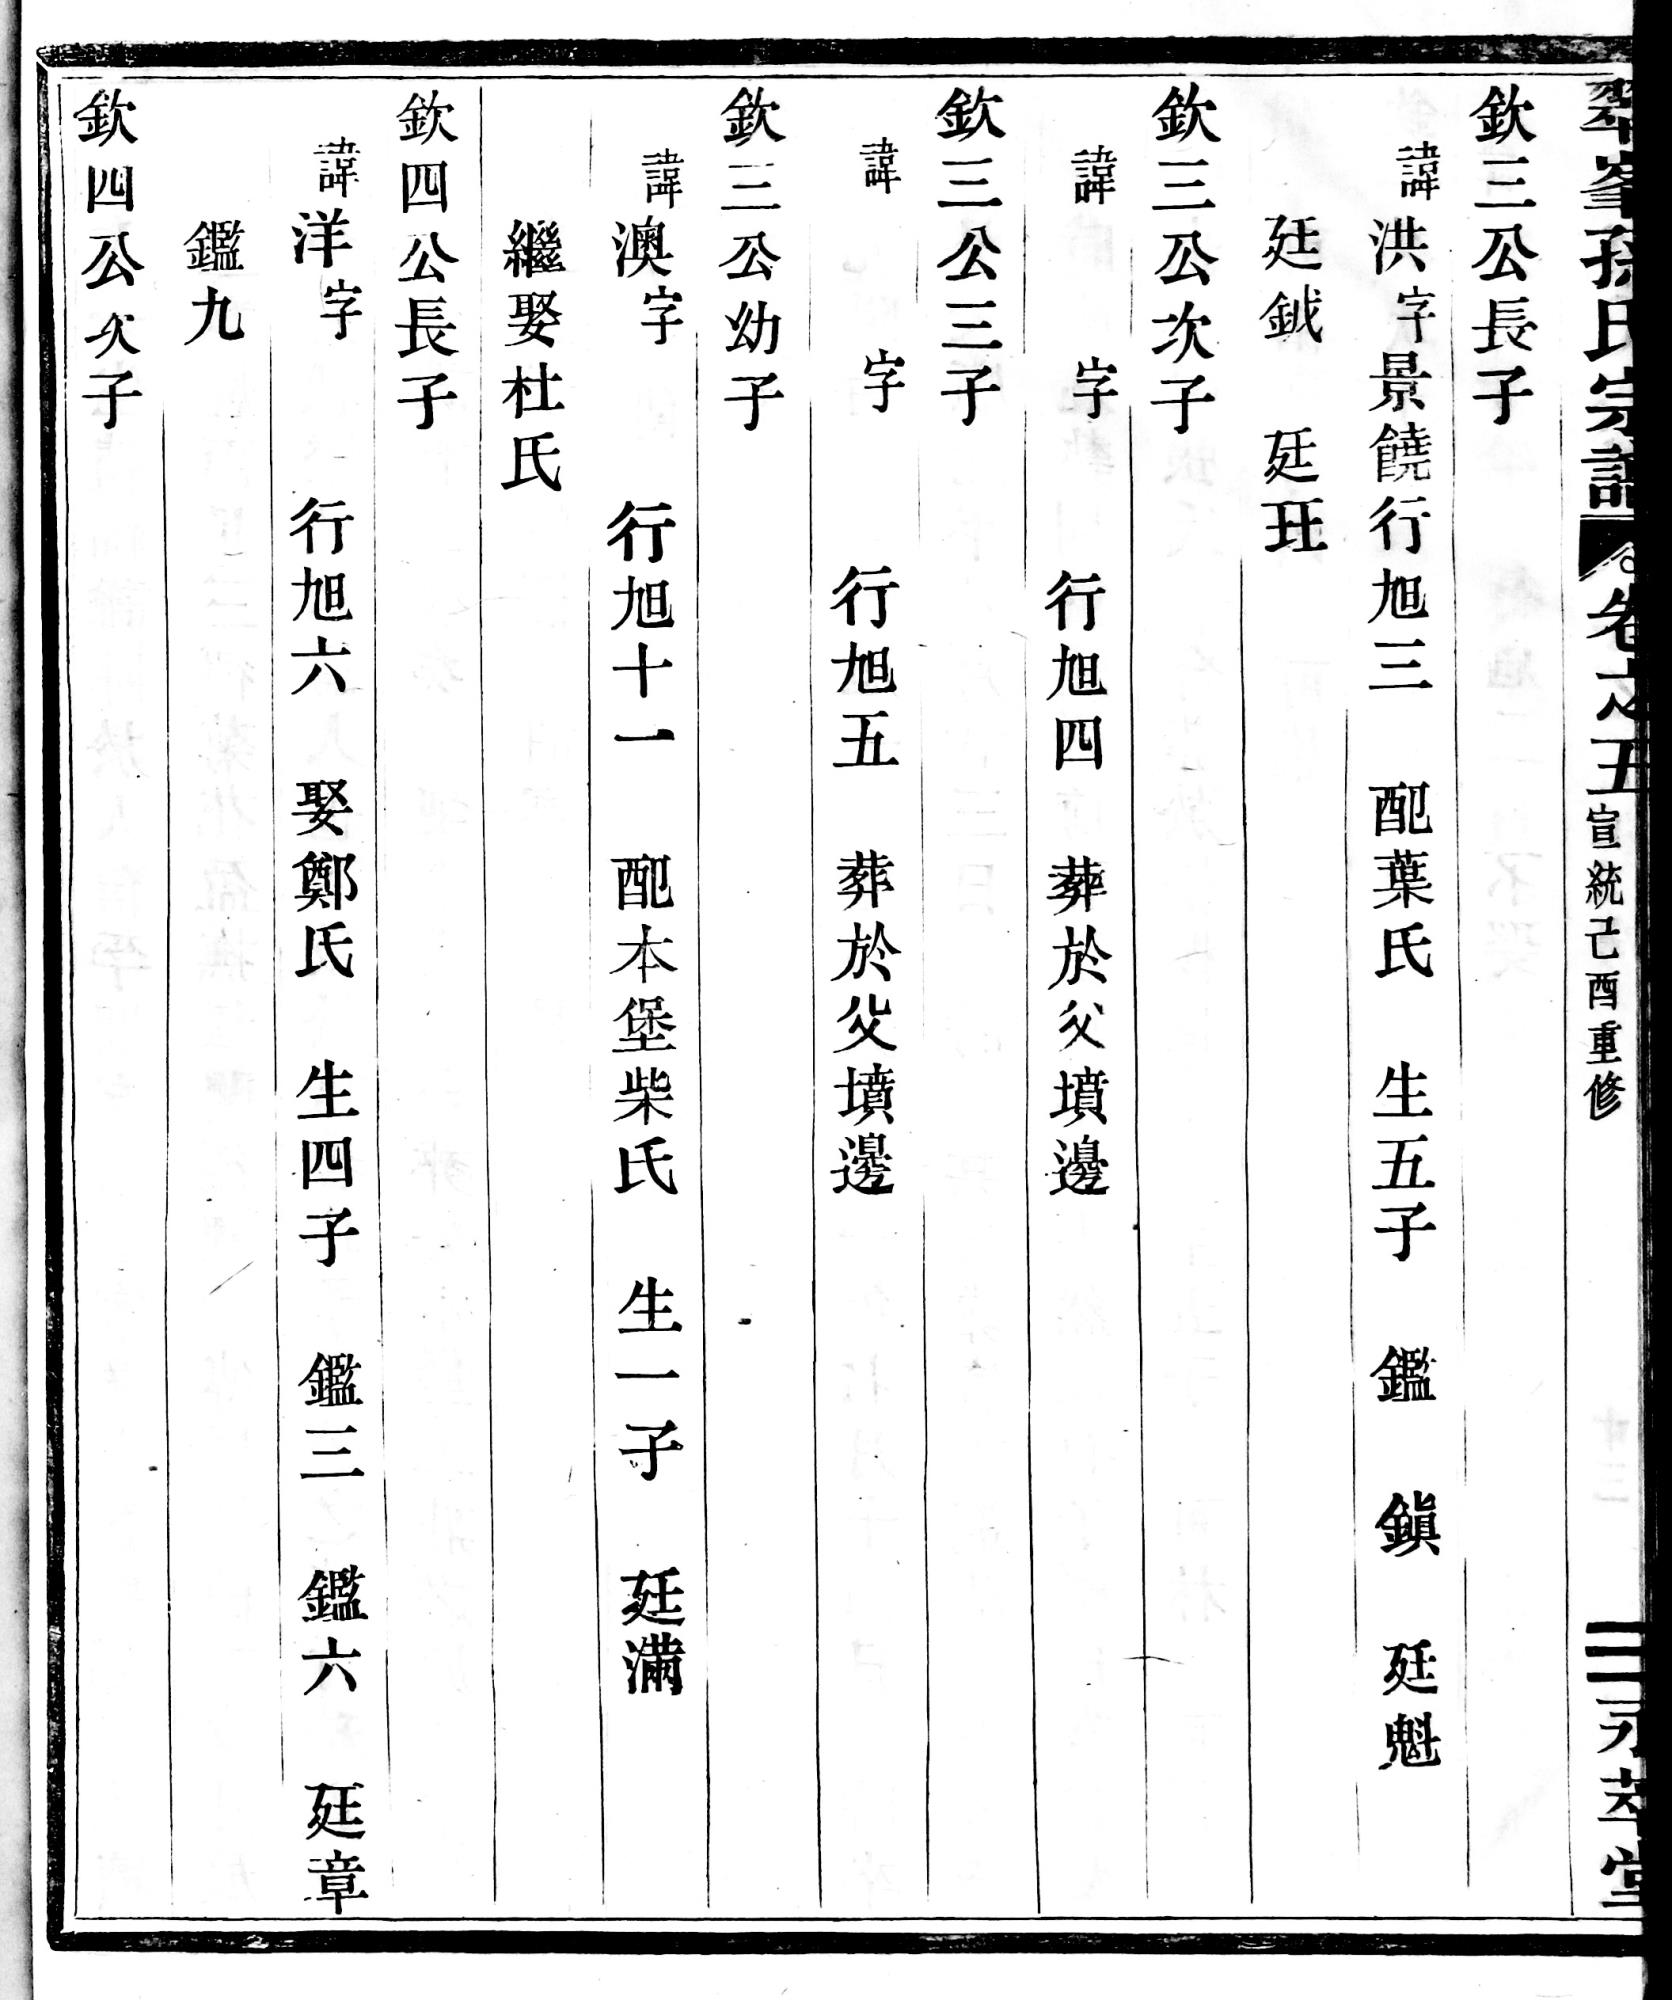 翠峯孫氏宗譜 卷之五 宣統己酉重修 二 永萃堂
欽三公長子
諱洪字景饒行旭三 配葉氏 生五子 鑑 鎭 廷魁
廷鉞 廷玨
欽三公次子
諱 字 行旭四 葬於父墳邊
欽三公三子
諱 字 行旭五 葬於父墳邊
欽三公幼子
諱澳字 行旭十一 配本堡柴氏 生一子 廷滿
繼娶杜氏
欽四公長子
諱洋字 行旭六 娶鄭氏 生四子 鑑三 鑑六 廷章
鑑九
欽四公次子